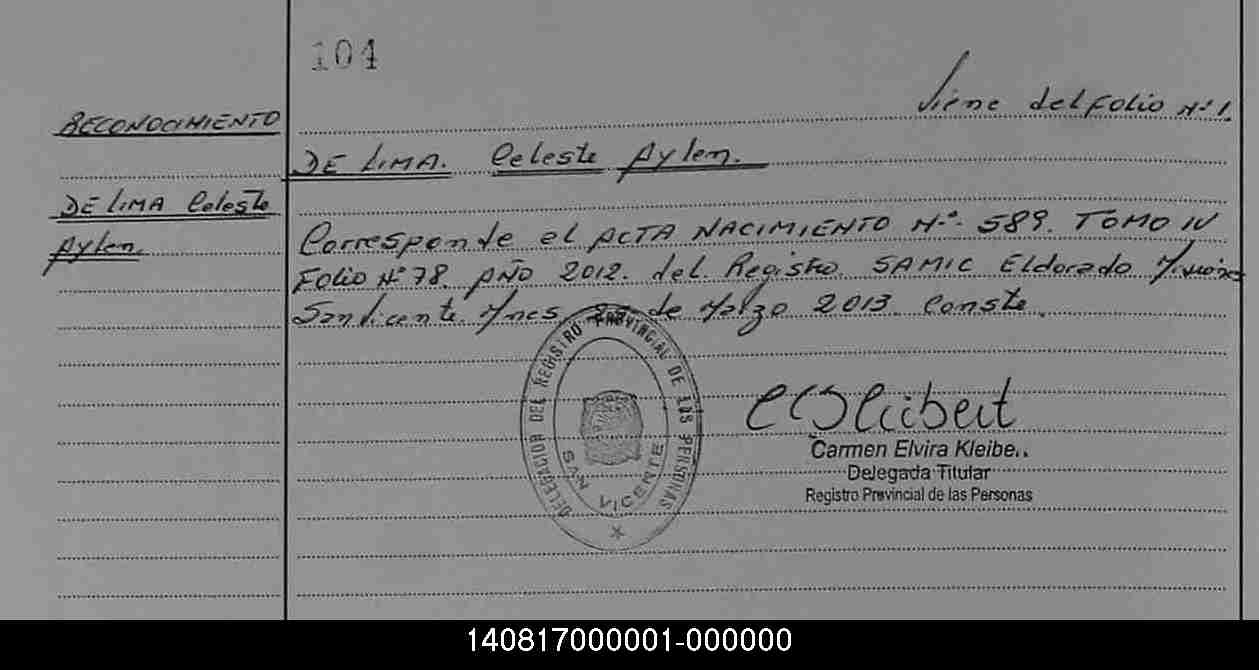 104
Viene del Folio Nº 1.
RECONOCIMIENTO
DE LIMA. Celeste Aylen.
DE LIMA Celeste
Aylen.
Corresponde el ACTA NACIMIENTO Nº. 589. TOMO IV
Folio Nº 78. AÑO 2012. del Registro. SAMIC Eldorado Misiones
San Vicente Mnes de Marzo 2013. Conste.
DELEGACION DEL REGISTRO PROVINCIAL DE LOS PERSONAS
SAN VICENTE
Carmen Elvira Kleibe..
Delegada Titular
Registro Provincial de las Personas
140817000001-000000